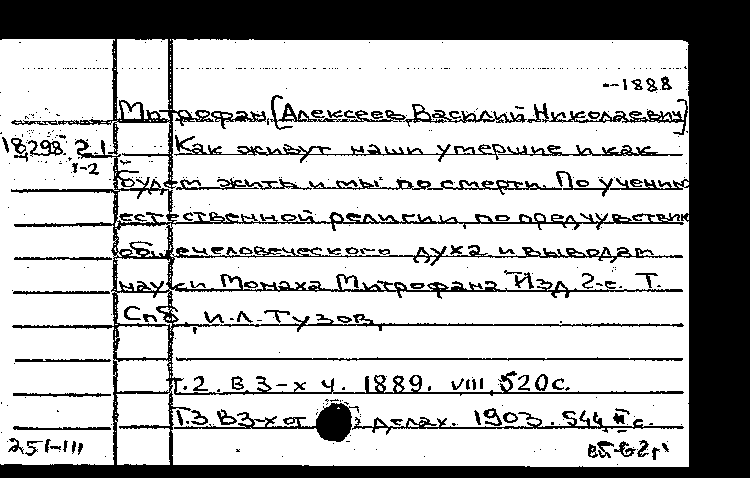 --1888
Митрофан, [Алексеев, Василий Николаевич]
18298 2 1 Как живут наши умершие и как
1-2
будем жить и мы по смерти. По учению
естественной религии, по предчувствию
общечеловеческого духа и выводам
науки Монаха Митрофана Изд 2-е. Т.
Спб, И.Л. Тузов,
Т.2. В 3-х ч. 1889. VIII, 520с.
Т.3 В 3-х от делах. 1903. 544, II с.
251-III